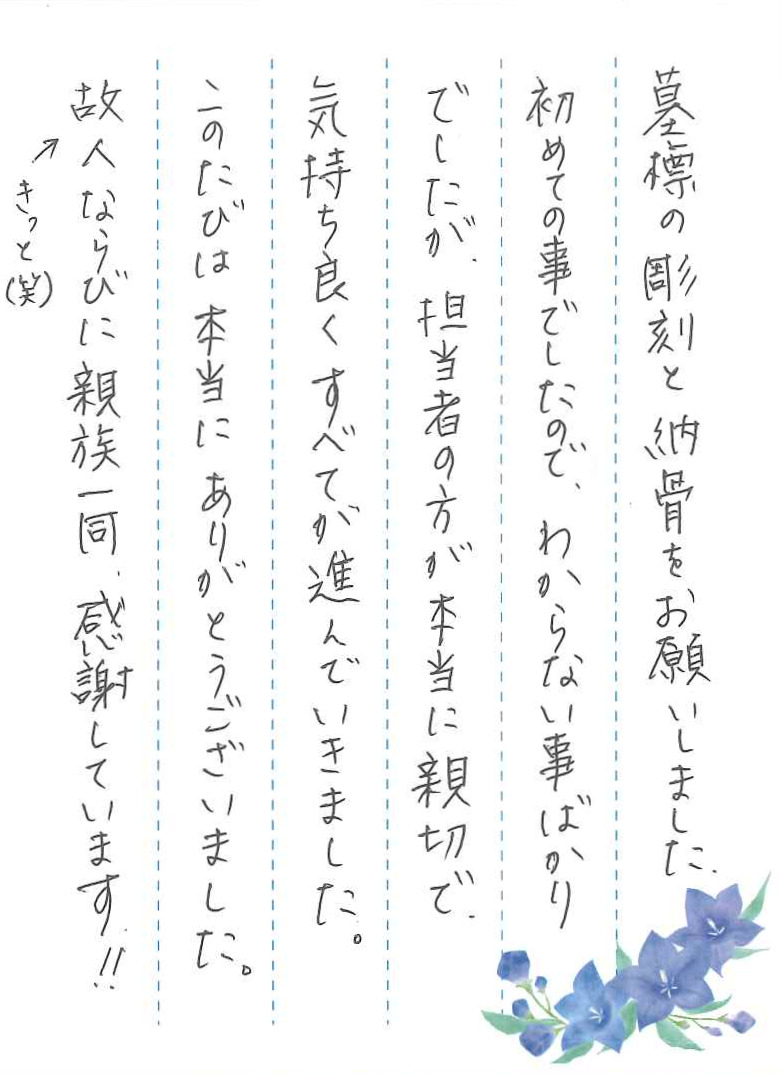 墓標の彫刻と納骨をお願いしました.
初めての事でしたので、わからない事ばかり
でしたが、担当者の方が本当に親切で、
気持ち良くすべてが進んでいきました。
このたびは本当にありがとうございました。
故人ならびに親族一同、感謝しています!!
↗きっと(笑)